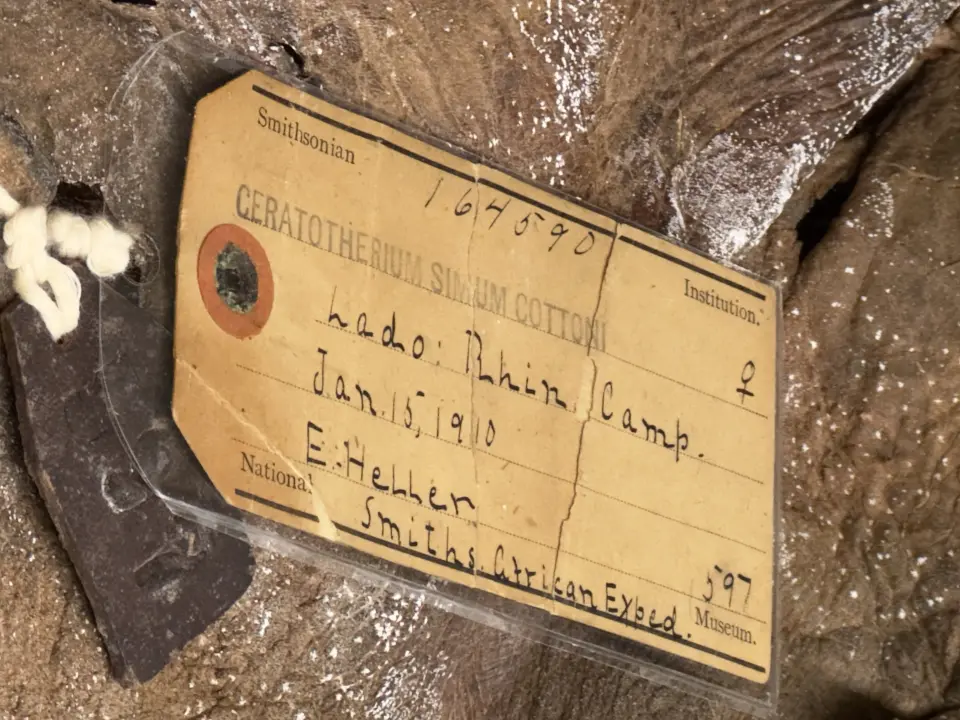 Smithsonian Institution.
164590
CERATOTHERIUM SIMUM COTTONI
♀
Lado: Rhin Camp.
Jan. 15, 1910
E. Heller
597
National Museum.
Smiths. African Exped.